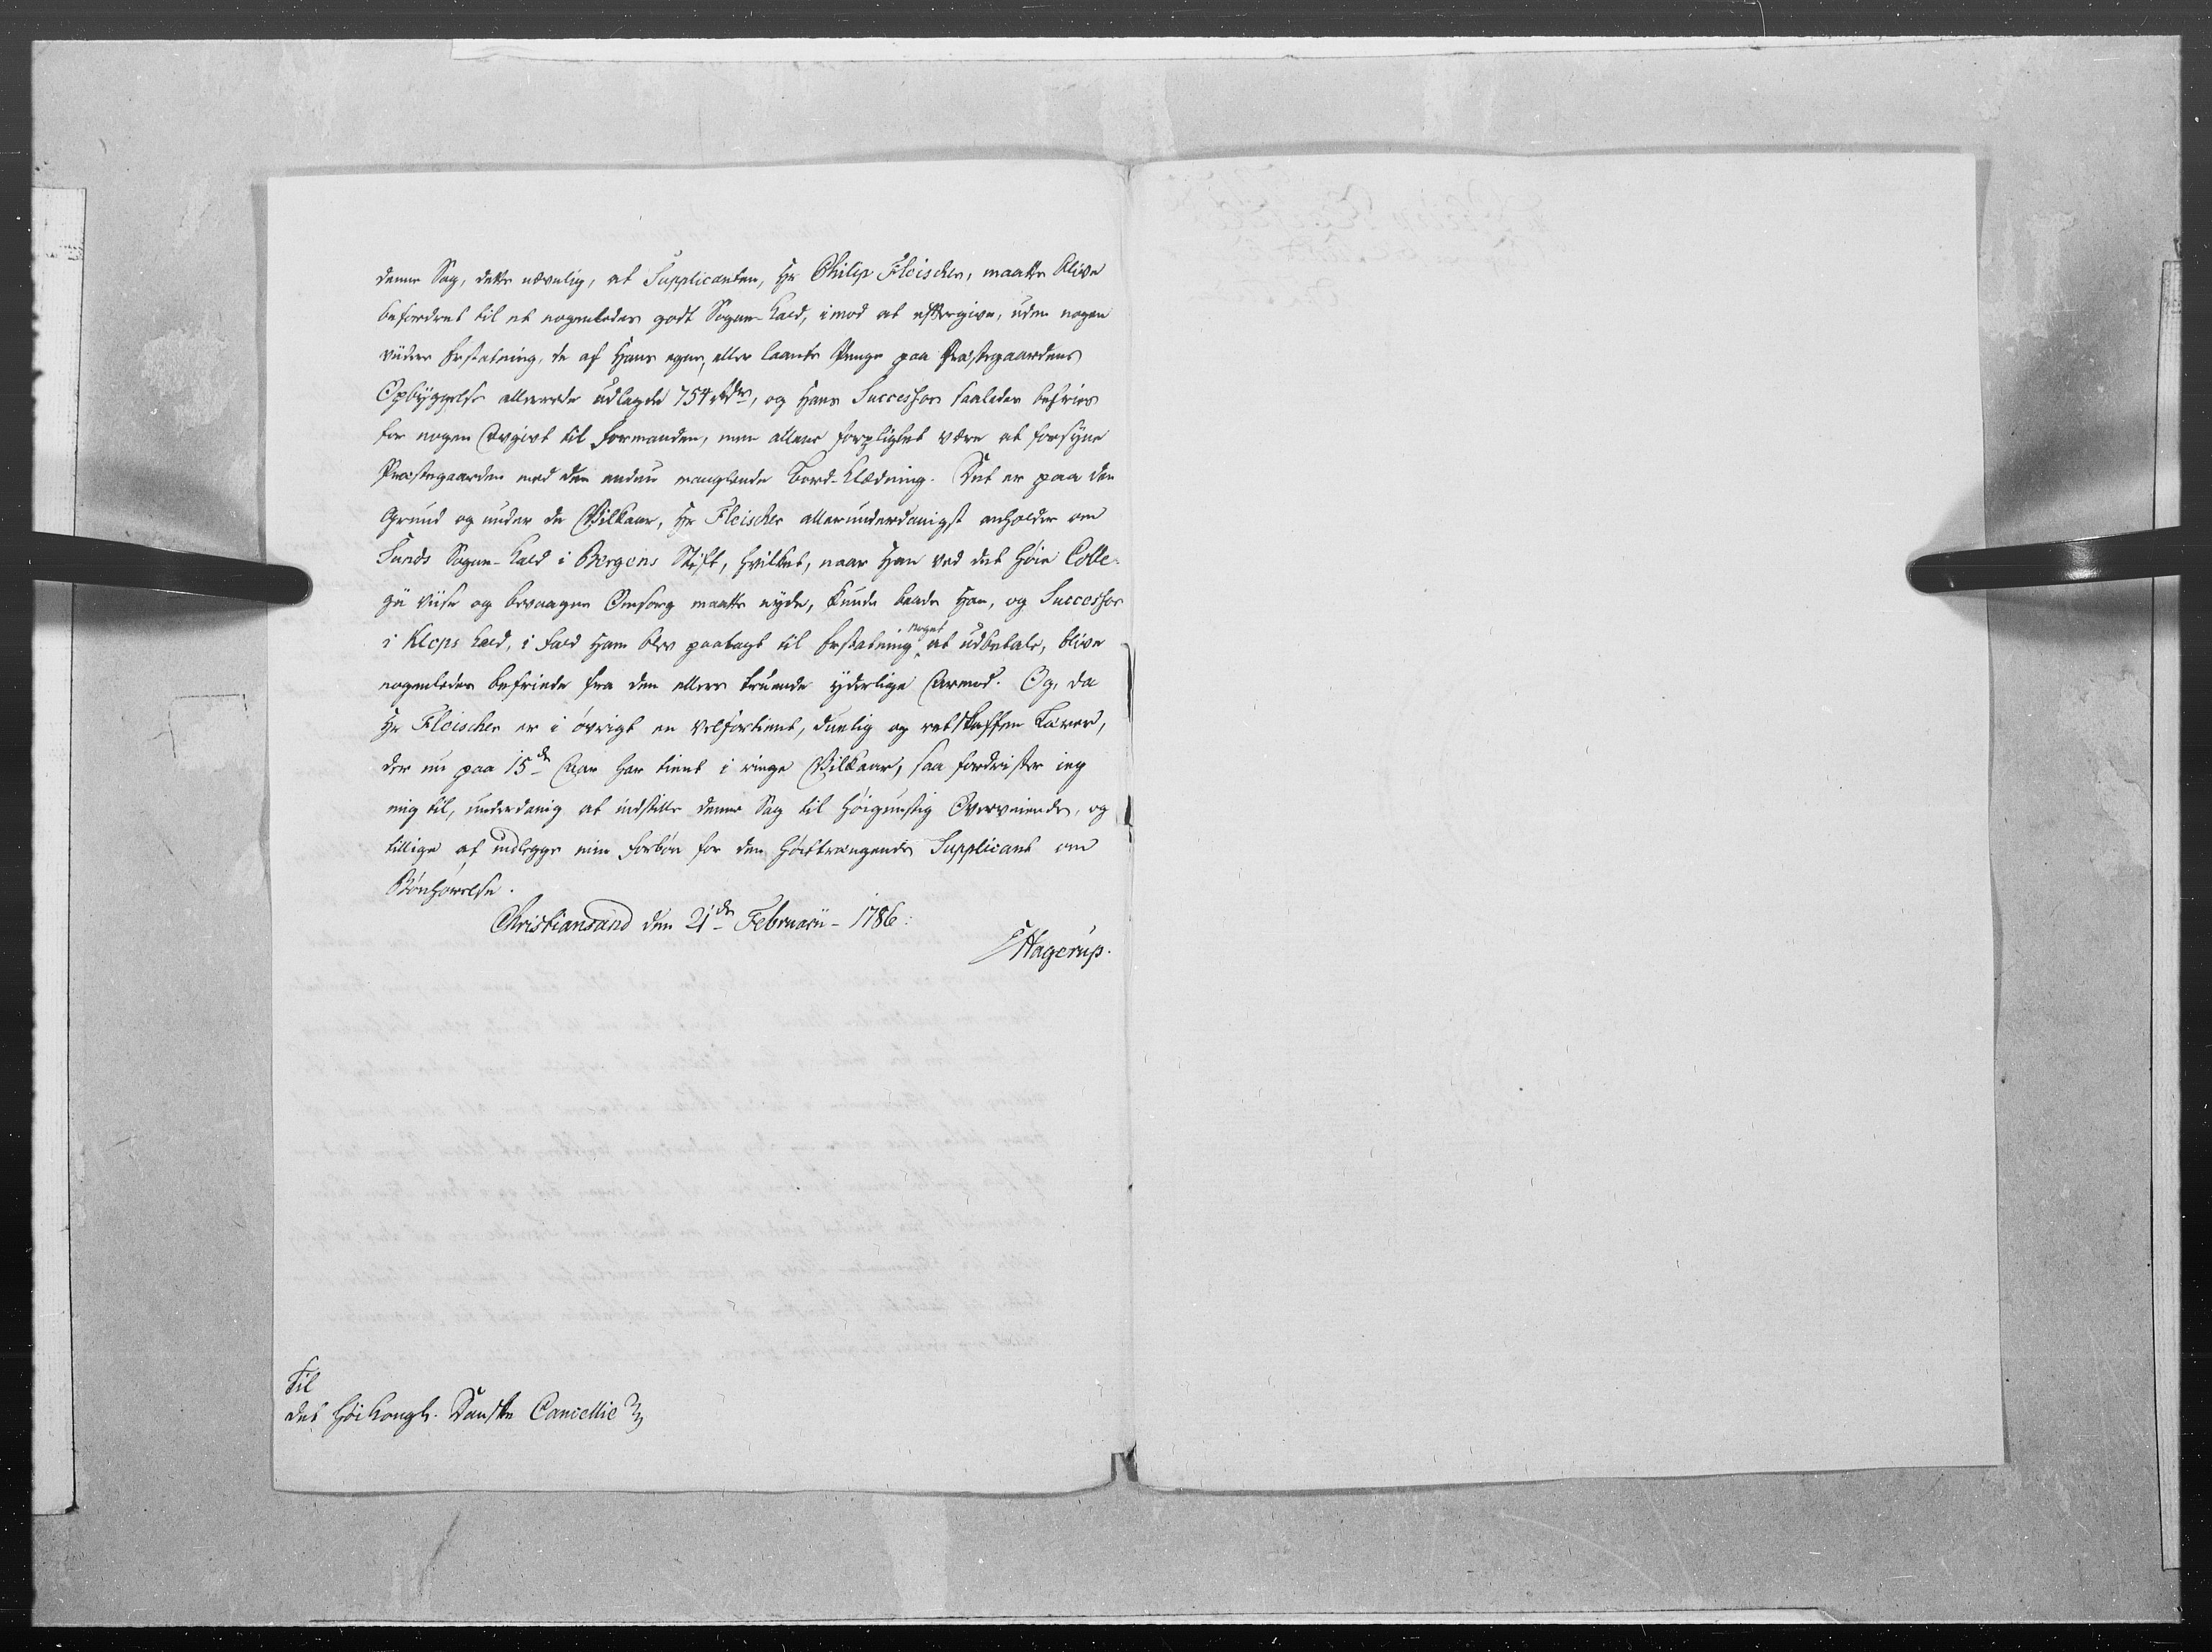 denne Sag, dette nævnlig, at Supplicanten, Hr Philip Fleischer, maatte blive
befordret til et nogenledes godt Sogne-Kald, imod at eftergive, uden nogen
viidere Erstatning, de af Hans egne, eller laante Penge paa Præstegaardens
Opbyggelse allerede udlagde 754 rdr, og Hans Successor saaledes befries
for nogen Avgivt til Formanden, men allene forpligtet være at forsyne
Præstegaarden med den endnu manglende Bord-Klædning. Det er paa den
Grund og under de Vilkaar, Hr Fleischer allerunderdanigst anholder om
Sunds Sogne-Kald i Bergens Stift, hvilket, naar Han ved det høie Colle-
gii viise og bevaagne Omsorg maatte nyde, kunde baade Han, og Successor
i Kleps Kald, i Fald Ham blev paalagt til Erstatning noget at udbetale, blive
nogenledes befriede fra den ellers truende yderlige Armod. Og, da
Hr Fleischer er i övrigt en velfortient, duelig og retskaffen Lærer,
der nu paa 15de Aar har tient i ringe Vilkaar, saa fordrister ieg
mig til, underdanig at indstille denne Sag til höigunstig Overveiende, og
tillige at indlegge min Forbön for den höittrængende Supplicant om
Bönhörelse.
Christiansand den 21de Februarii - 1786.
Hagerup.
Til
det höikongl. Danske Cancellie